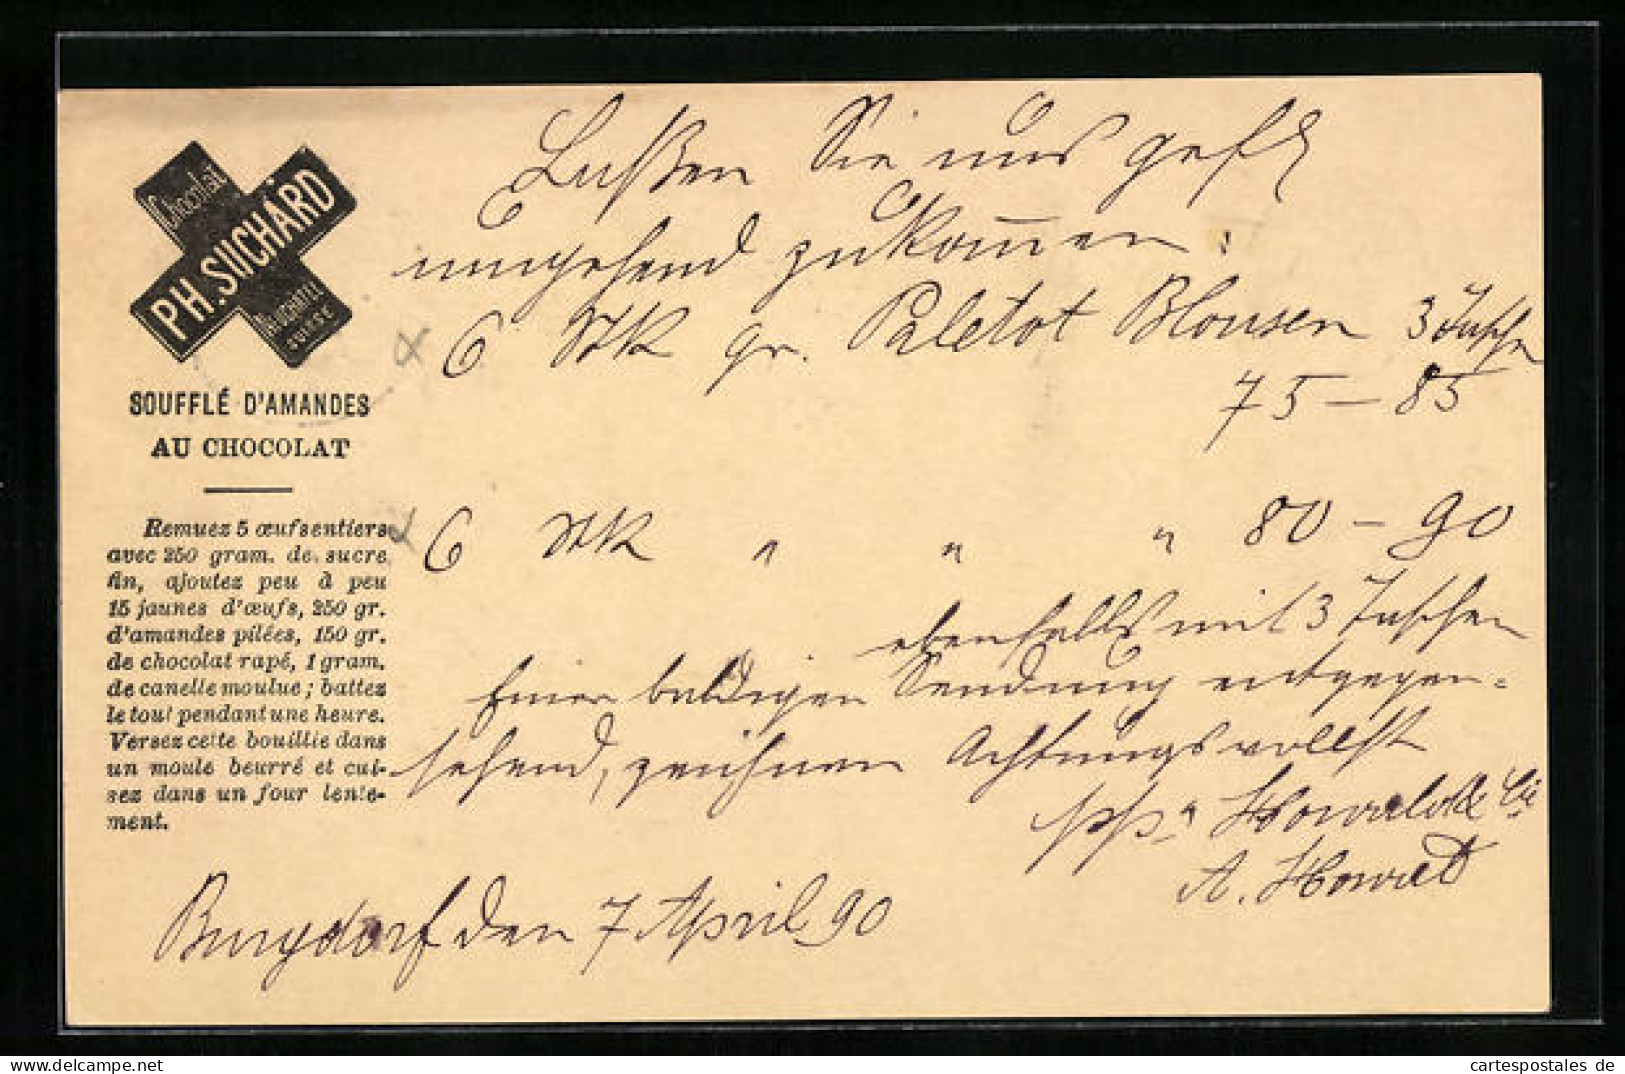 Chocolat
PH. SUCHARD
NEUCHATEL
SUISSE
SOUFFLÉ D'AMANDES
AU CHOCOLAT
Remuez 5 œufs entiers
avec 250 gram. de sucre
fin, ajoutez peu à peu
15 jaunes d'œufs, 250 gr.
d'amandes pilées, 150 gr.
de chocolat rapé, 1 gram.
de canelle moulue; battez
le tout pendant une heure.
Versez cette bouillie dans
un moule beurré et cui-
sez dans un four lente-
ment.
Laßen Sie uns gefl
umgehend zukom̅en:
6 Stk gr. Paletot Blousen 3 Tasche
75 – 85
6 Stk " " " 80 – 90
ebenfalls mit 3 Taschen
Einer baldigen Sendung entgegen=
sehend, zeichnen Achtungsvollst
ppa Howald & Cie
A. Howald
Burgdorf den 7 April 90
delcampe.net
cartespostales de